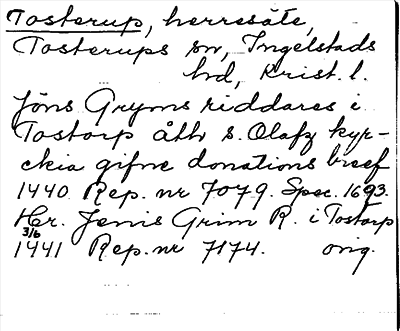 Tosterup, herresäte,
Tosterups sn, Ingelstads
hd, Krist. l.
Jöns Gryms riddares i
Tostorp åth s. Olafz kyr-
ckia gifne donations breef
1440 Rep. nr 7079. Spec. 1693.
Hr. Jenis Grim R. i Tostorp
3/6
1441 Rep. nr 7174. orig.